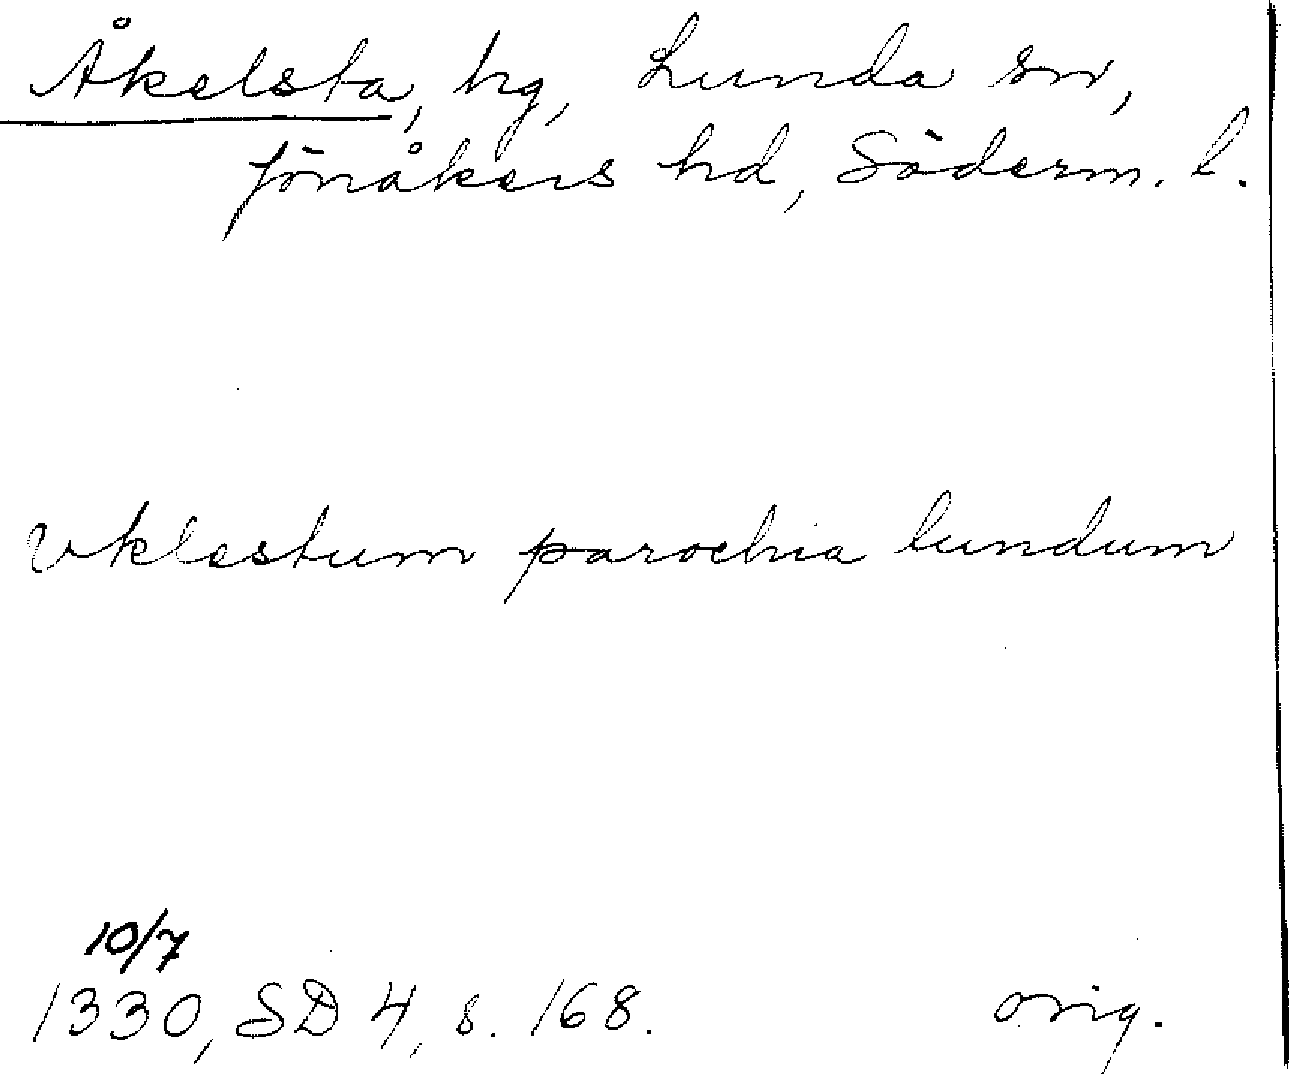 Åkelsta, hg, Lunda sn,
Jönåkers hd, Söderm. l.
vklestum parochia lundum
10/7
1330, SD 4, s. 168. orig.